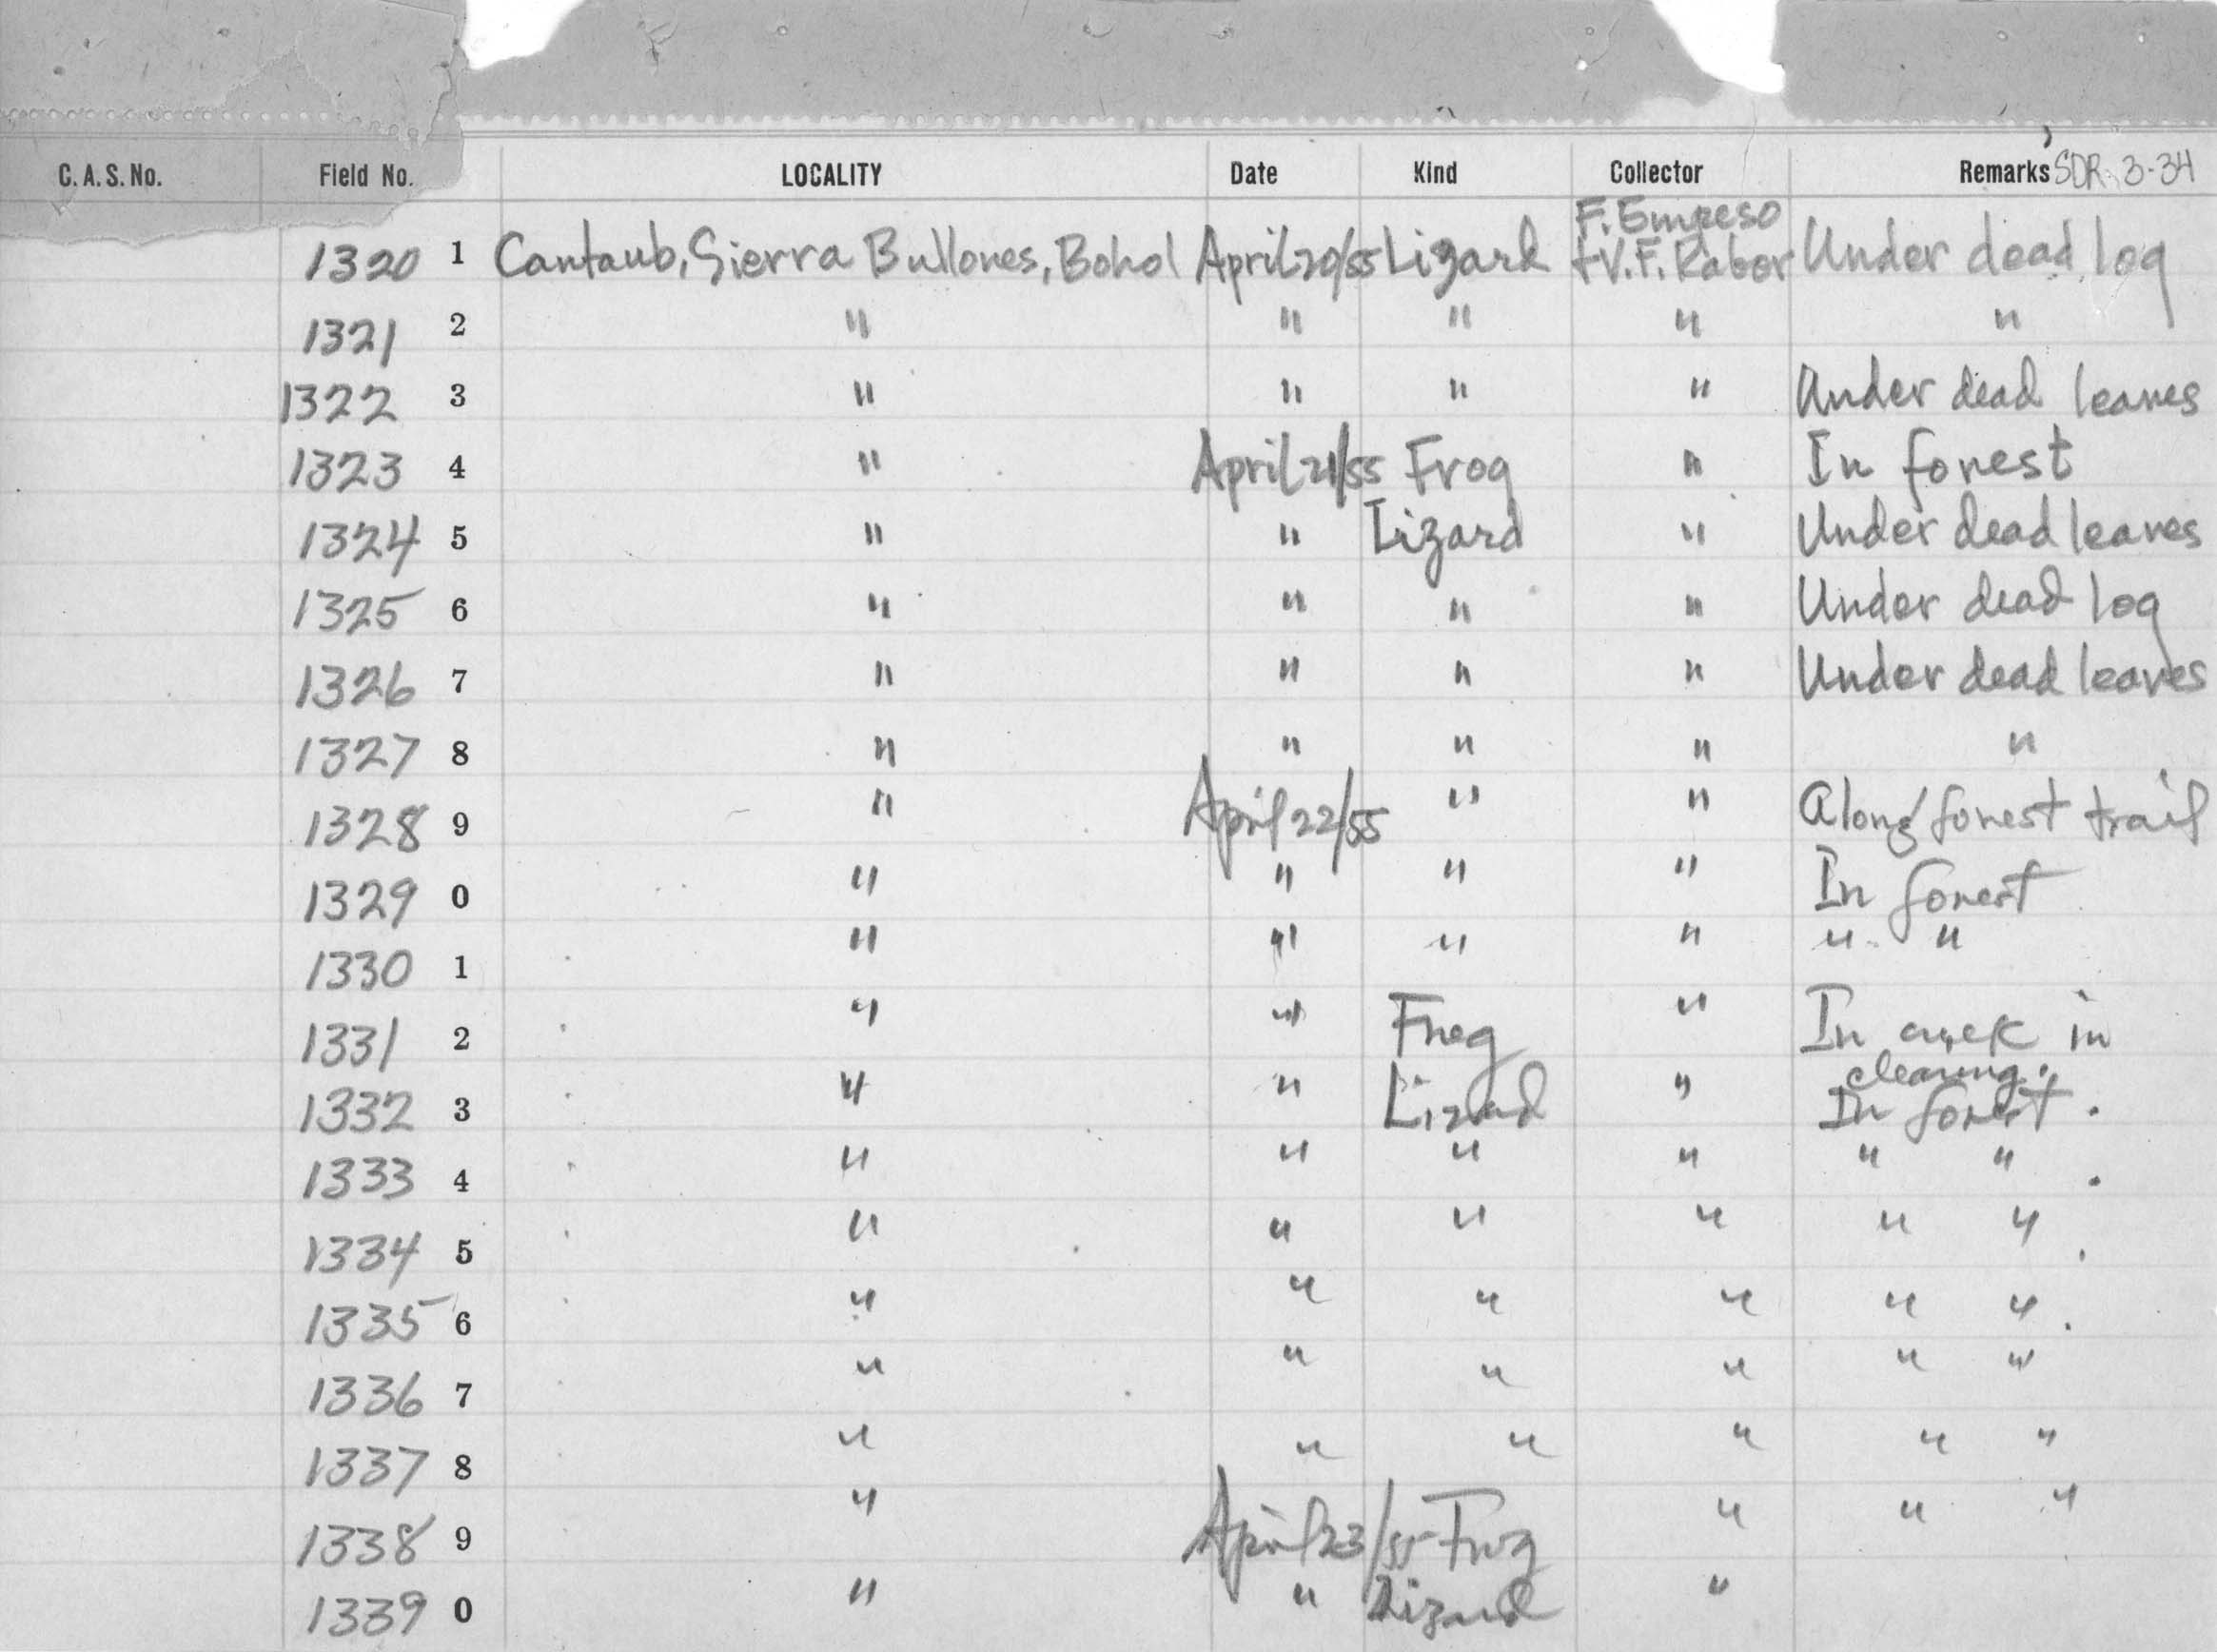 C. A. S. No. Field No. LOCALITY Date Kind Collector Remarks SDR 3-34
1320 1 Cantaub, Sierra Bullones, Bohol April 20/55 Lizard F. Empeso + V. F. Rabor Under dead log
1321 2 " " " " "
1322 3 " " " " Under dead leaves
1323 4 " April 21/55 Frog " In forest
1324 5 " " Lizard " Under dead leaves
1325 6 " " " " Under dead log
1326 7 " " " " Under dead leaves
1327 8 " " " " "
1328 9 " April 22/55 " " Along forest trail
1329 0 " " " " In forest
1330 1 " " " " " "
1331 2 " " Frog " In creek in clearing.
1332 3 " " Lizard " In forest.
1333 4 " " " " " " .
1334 5 " " " " " " .
1335 6 " " " " " " .
1336 7 " " " " " "
1337 8 " " " " " "
1338 9 " April 23/55 Frog " " "
1339 0 " " Lizard "